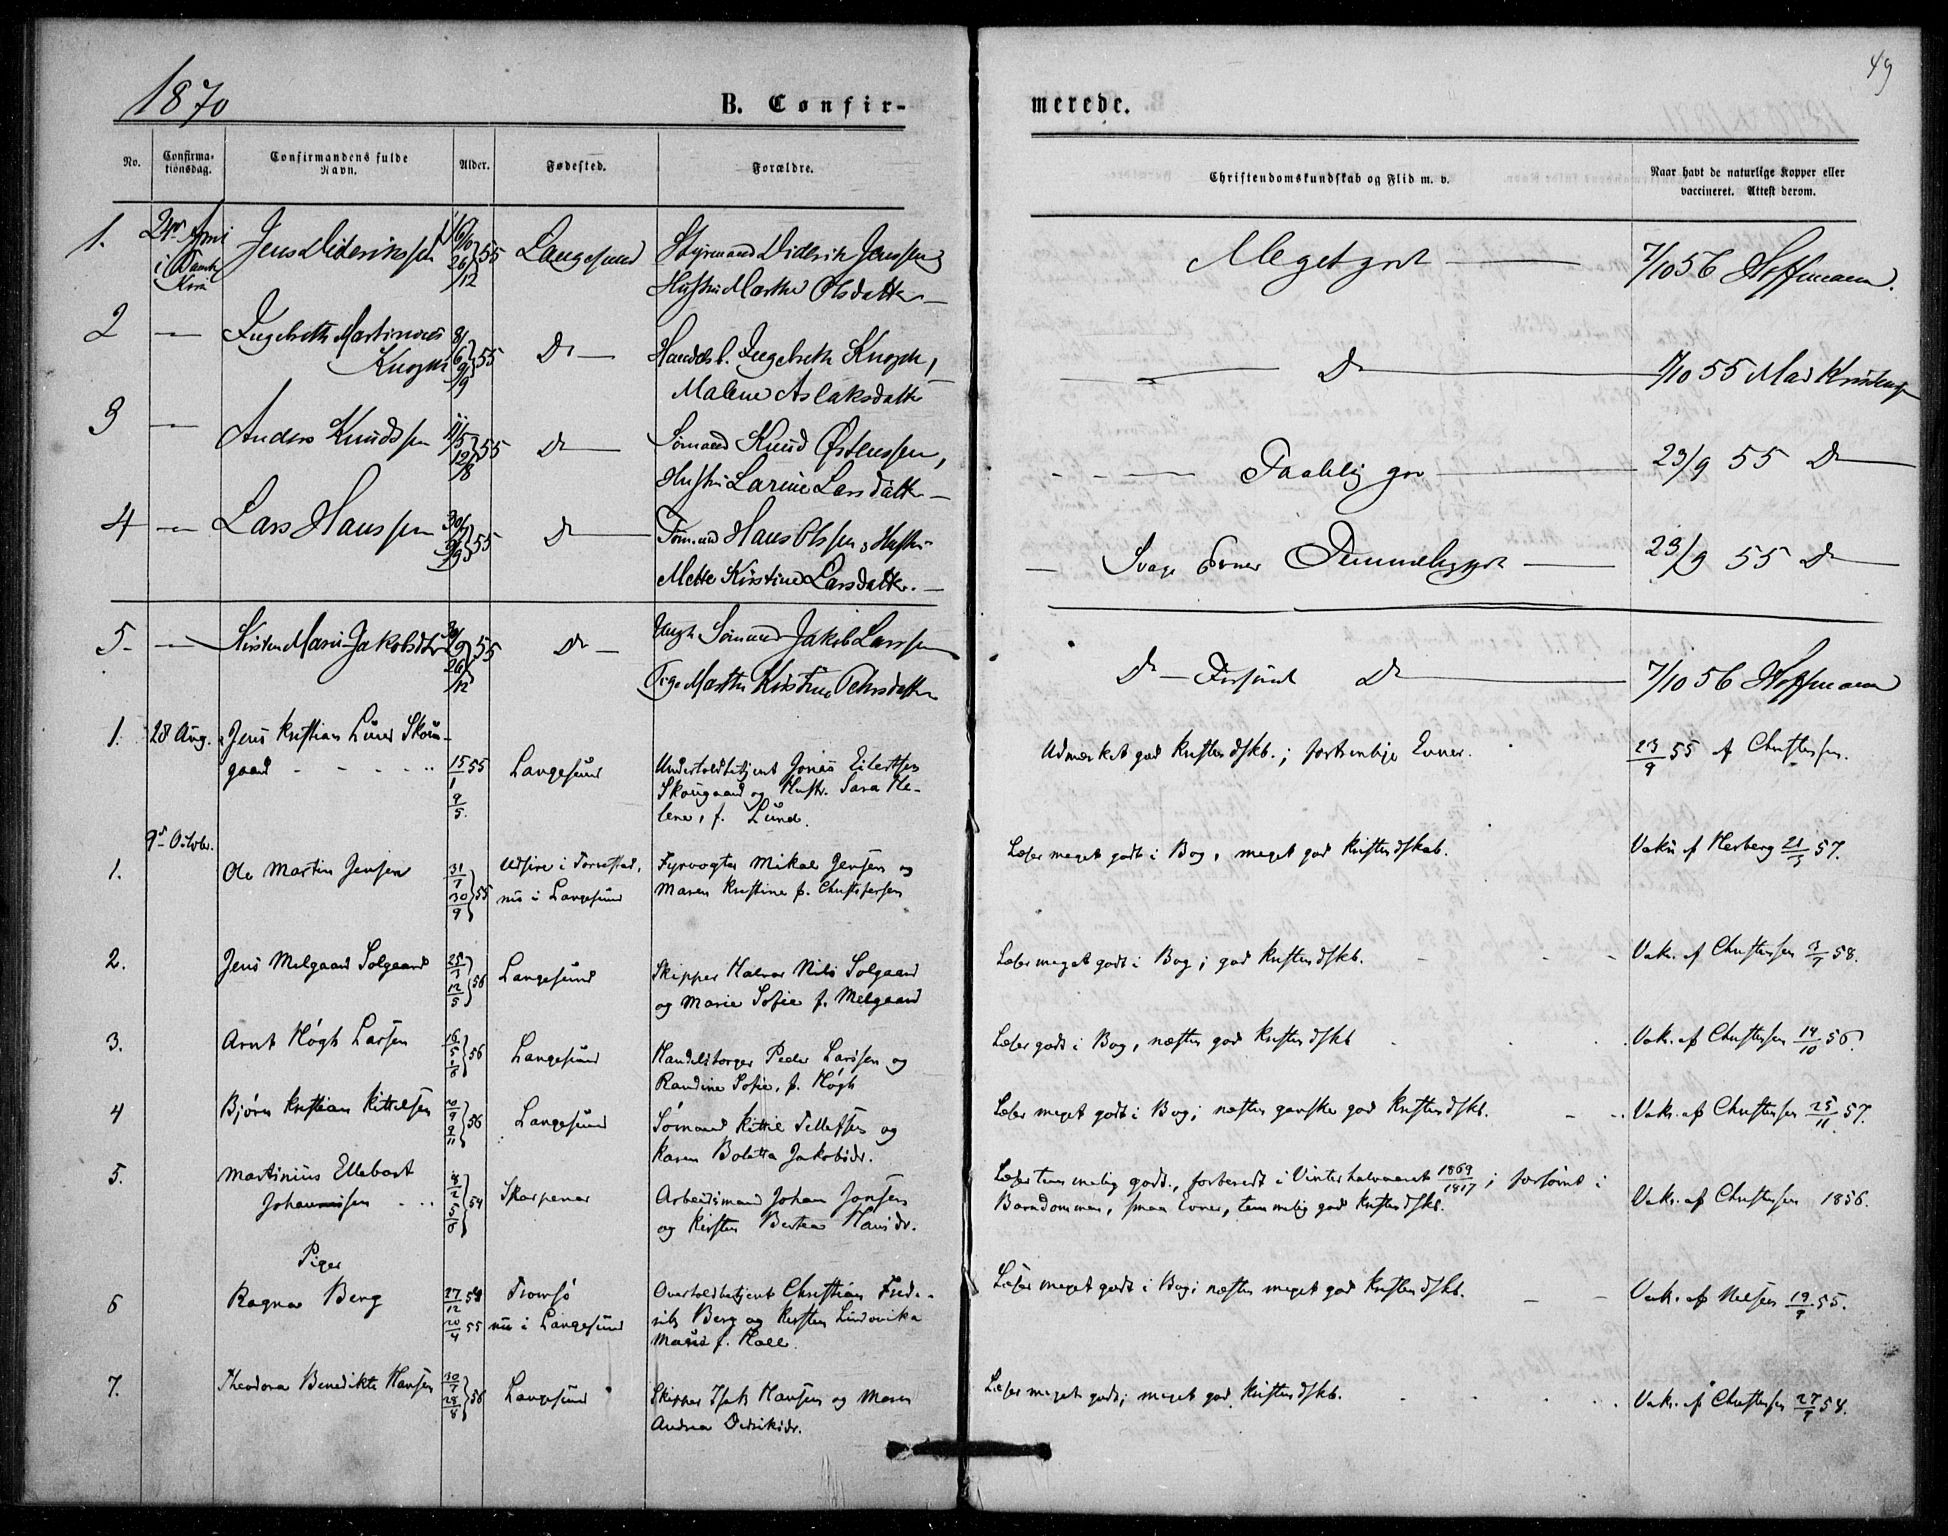 49
1870
B. Confir-
merede.
No.
Confirma-
tionsdag.
Confirmandens fulde
Navn.
Alder.
Fødested.
Forældre.
Christendomskundskab og Flid m. v.
Naar havt de naturlige Kopper eller
vaccineret. Attest derom.
1. Jens Dideriksen 55 Langesund Styrmand Diderik Jensen
26/12 Hustru Marthe Olsdatter
Meget godt 7/10 56 Hoffmann.
2 Ingebreth Martinius 55 Do Handelsb. Ingebreth Knozn,
Malene Aslaksdatter
Do 55 Mad Kristens
3 Anders Knudssen 11/5 12/8 55 Do Sømand Knud Østenssen,
Hustru Larine Larsdatter
Taalelig god 23/9 55 Do
4 Lars Hanssen 55 Do Hans Olssen, Hustru
Mette Kirstine Larsdatter.
Svage Evner Temmelig godt 23/9 55 Do
5 Kirsten Marie Jakobsdtr 26/12 55 Do Ungk. Sømand Jakob Larssen
Pige Marthe Kirstine Pehrsdatter
Do Forsømt Do 7/10 56 Hoffmann
1. 28 Aug. Jens Kristian Lund Skou-
gaard 15/1 55 9/5. Langesund Undertoldbetjent Jonas Eilertsen
Skougaard og Hustr. Sara He-
lene, f. Lund.
Udmærket god Kristendskb.; fortrinlige Evner. 23/9 55 af Christensen.
9de Octobr.
1. Ole Martin Jensen 31/7 30/9 55 Udsire i Torvestad, Fyrvogter Mikal Jensen og
nu i Langesund Maren Kristine f. Christofersen
Læser meget godt i Bog, meget god Kristendskab. Vakn. af Herberg 21/5 57.
2. Jens Melgaard Solgaard 25/3 12/5 56 Langesund Skipper Halvor Nils Solgaard
og Marie Sofie f. Melgaard
Læser meget godt i Bog; god Kristendskb. Vak. af Christensen 58.
3. Arnt Høgh Larsen 16/5 1/6 56 Langesund Handelsborger Peder Larssen og
Randine Sofie, f. Høgh
Læser godt i Bog, næsten god Kristendskb Vak. af Christensen 14/10 56.
4 Bjørn Kristian Kittelsen 9/11 56 Langesund Sømand Kittil Tellefsen og
Karen Boletta Jakobsdr.
Læser meget godt i Bog; næsten ganske god Kristendskb. Vak. af Christensen 25/11 57.
5. Martinius Ellebart
Johannisen 4/2 5/6 54 Skarpenor Arbeidsmand Johan Jonsen
og Kirsten Bertea Hansdr.
Læser temmelig godt., forberedt i Vinterhalvaaret 1869; forsømt i
Barndommen, smaa Evner, temmelig god Kristendskb. Vak. af Christensen 1856.
Piger
6 Ragna Berg 27/12 54 Tromsø Overtoldbetjent Christian Frede-
20/4 55 nu i Langesund riks Berg og Kirsten Lindovika
Marie f. Hall
Læser meget godt i Bog; næsten meget god Kristendskb. Vak. af Nielsen 19/9 55.
7. Theodora Benedikte Hansen 30/7 28/8 56 Langesund Skipper Isak Hansen og Maren
Andrea Didriksdr.
Læser meget godt; meget god Kristendskb. Vak. af Christensen 27/9 58.